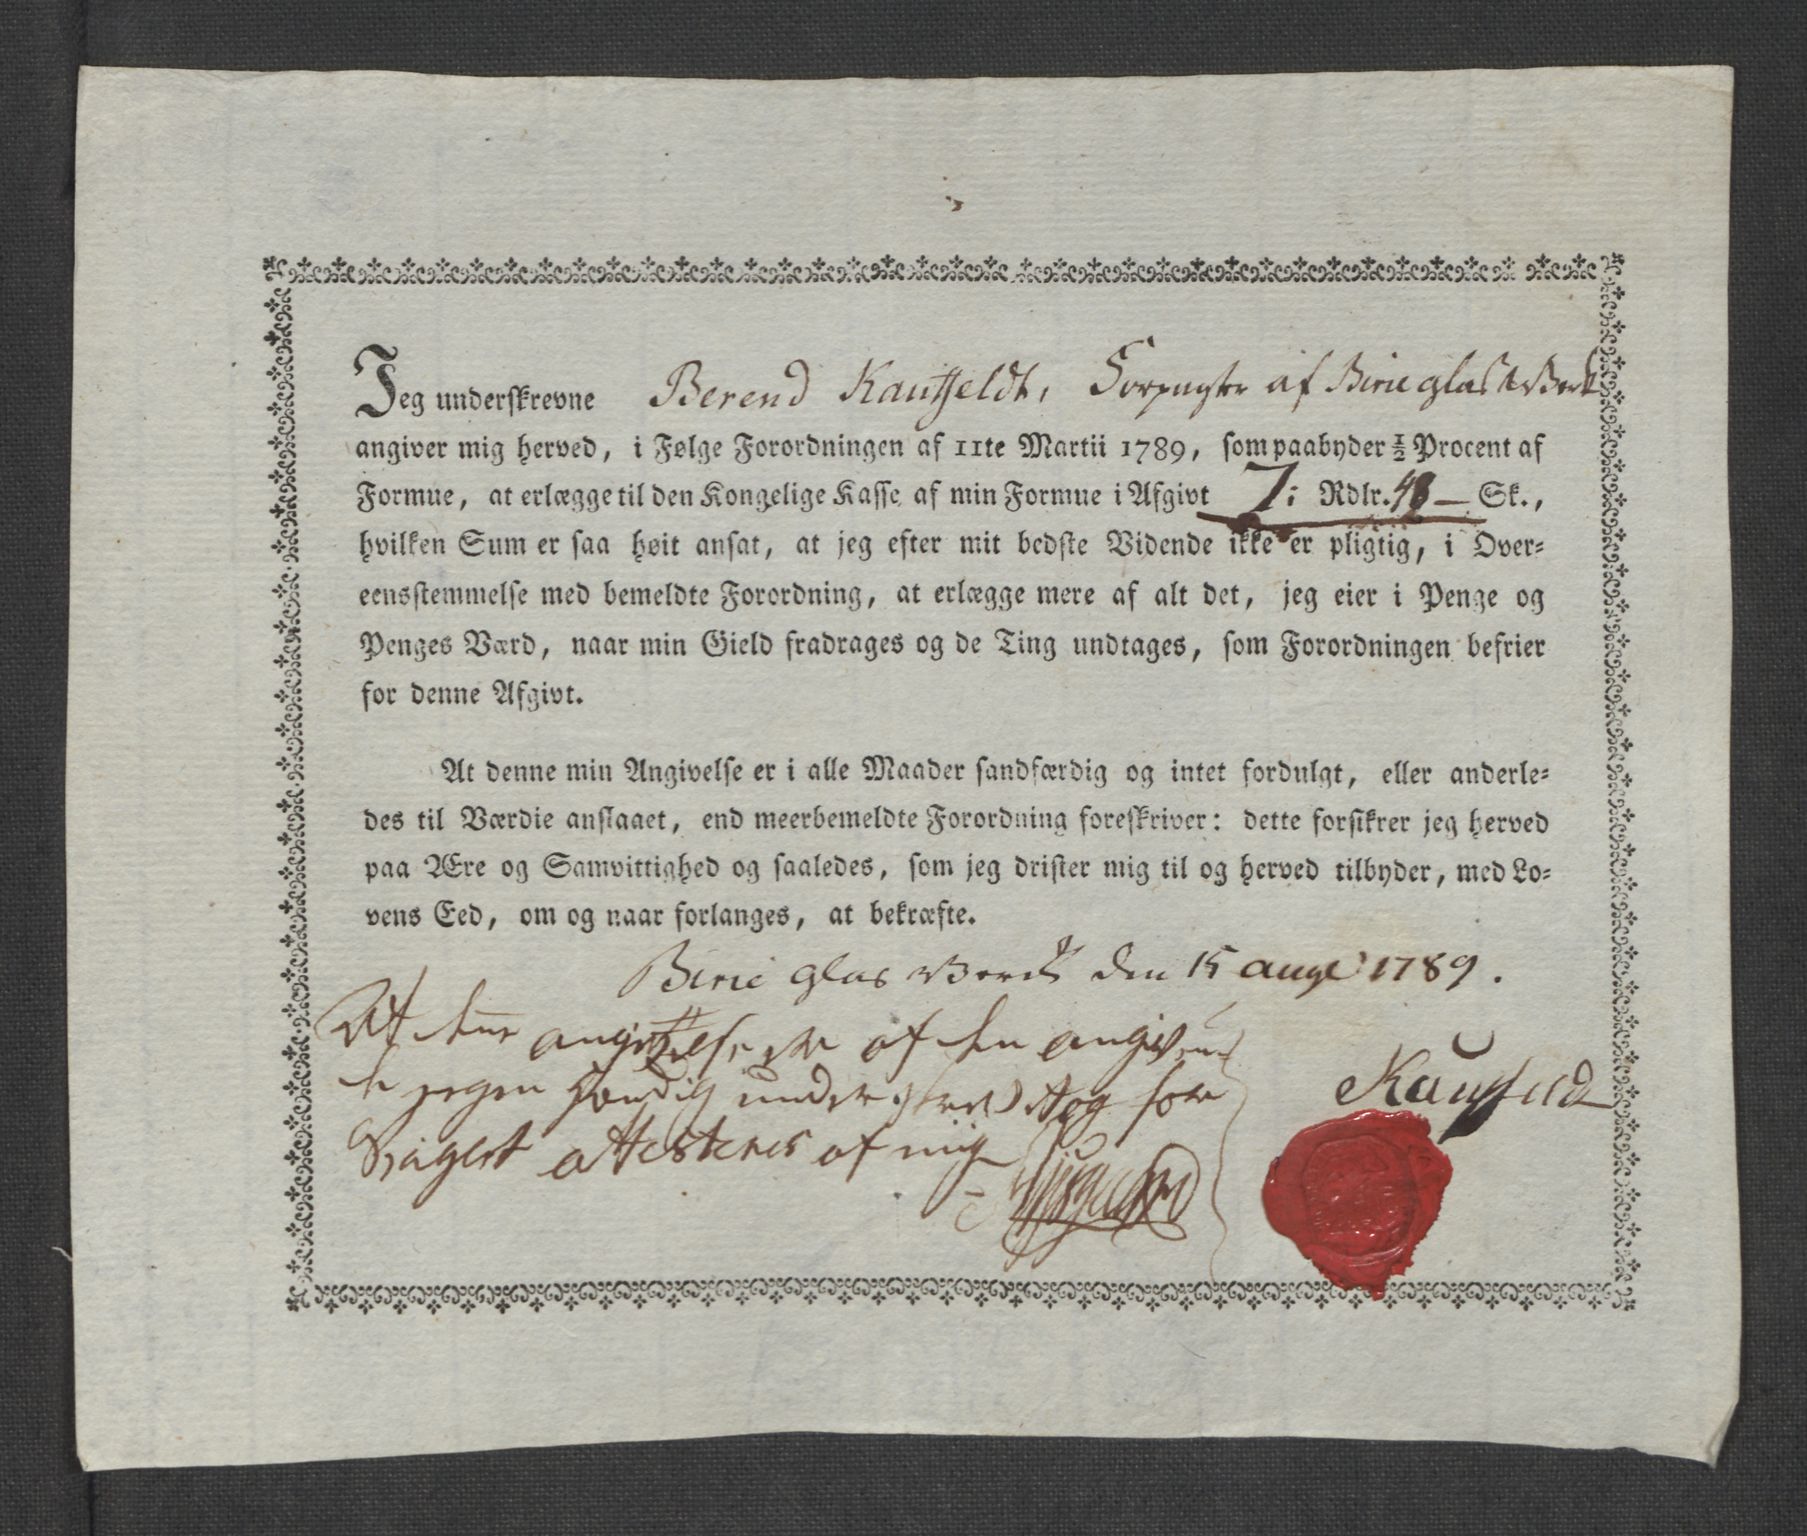 Jeg underskrevne Berend Kauffeldt, Forpagter af Birie glas Werk
angiver mig herved, i Følge Forordningen af 11te Martii 1789, som paabyder ½ Procent af
Formue, at erlægge til den Kongelige Kasse af min Formue i Afgivt 7: Rdlr. 48 — Sk.,
hvilken Sum er saa høit ansat, at jeg efter mit bedste Vidende ikke er pligtig, i Over-
eensstemmelse med bemeldte Forordning, at erlægge mere af alt det, jeg eier i Penge og
Penges Værd, naar min Gield fradrages og de Ting undtages, som Forordningen befrier
for denne Afgivt.
At denne min Angivelse er i alle Maader sandfærdig og intet fordulgt, eller anderle-
des til Værdie anslaaet, end meerbemeldte Forordning foreskriver: dette forsikrer jeg herved
paa Ære og Samvittighed og saaledes, som jeg drister mig til og herved tilbyder, med Lo-
vens Eed, om og naar forlanges, at bekræfte.
Birie glas Werck den 15 augt 1789.
At denne angivelse er af den angiven-
de egen hændig underskrevet og for
Seiglet attesteres af mig
Kauffeldt